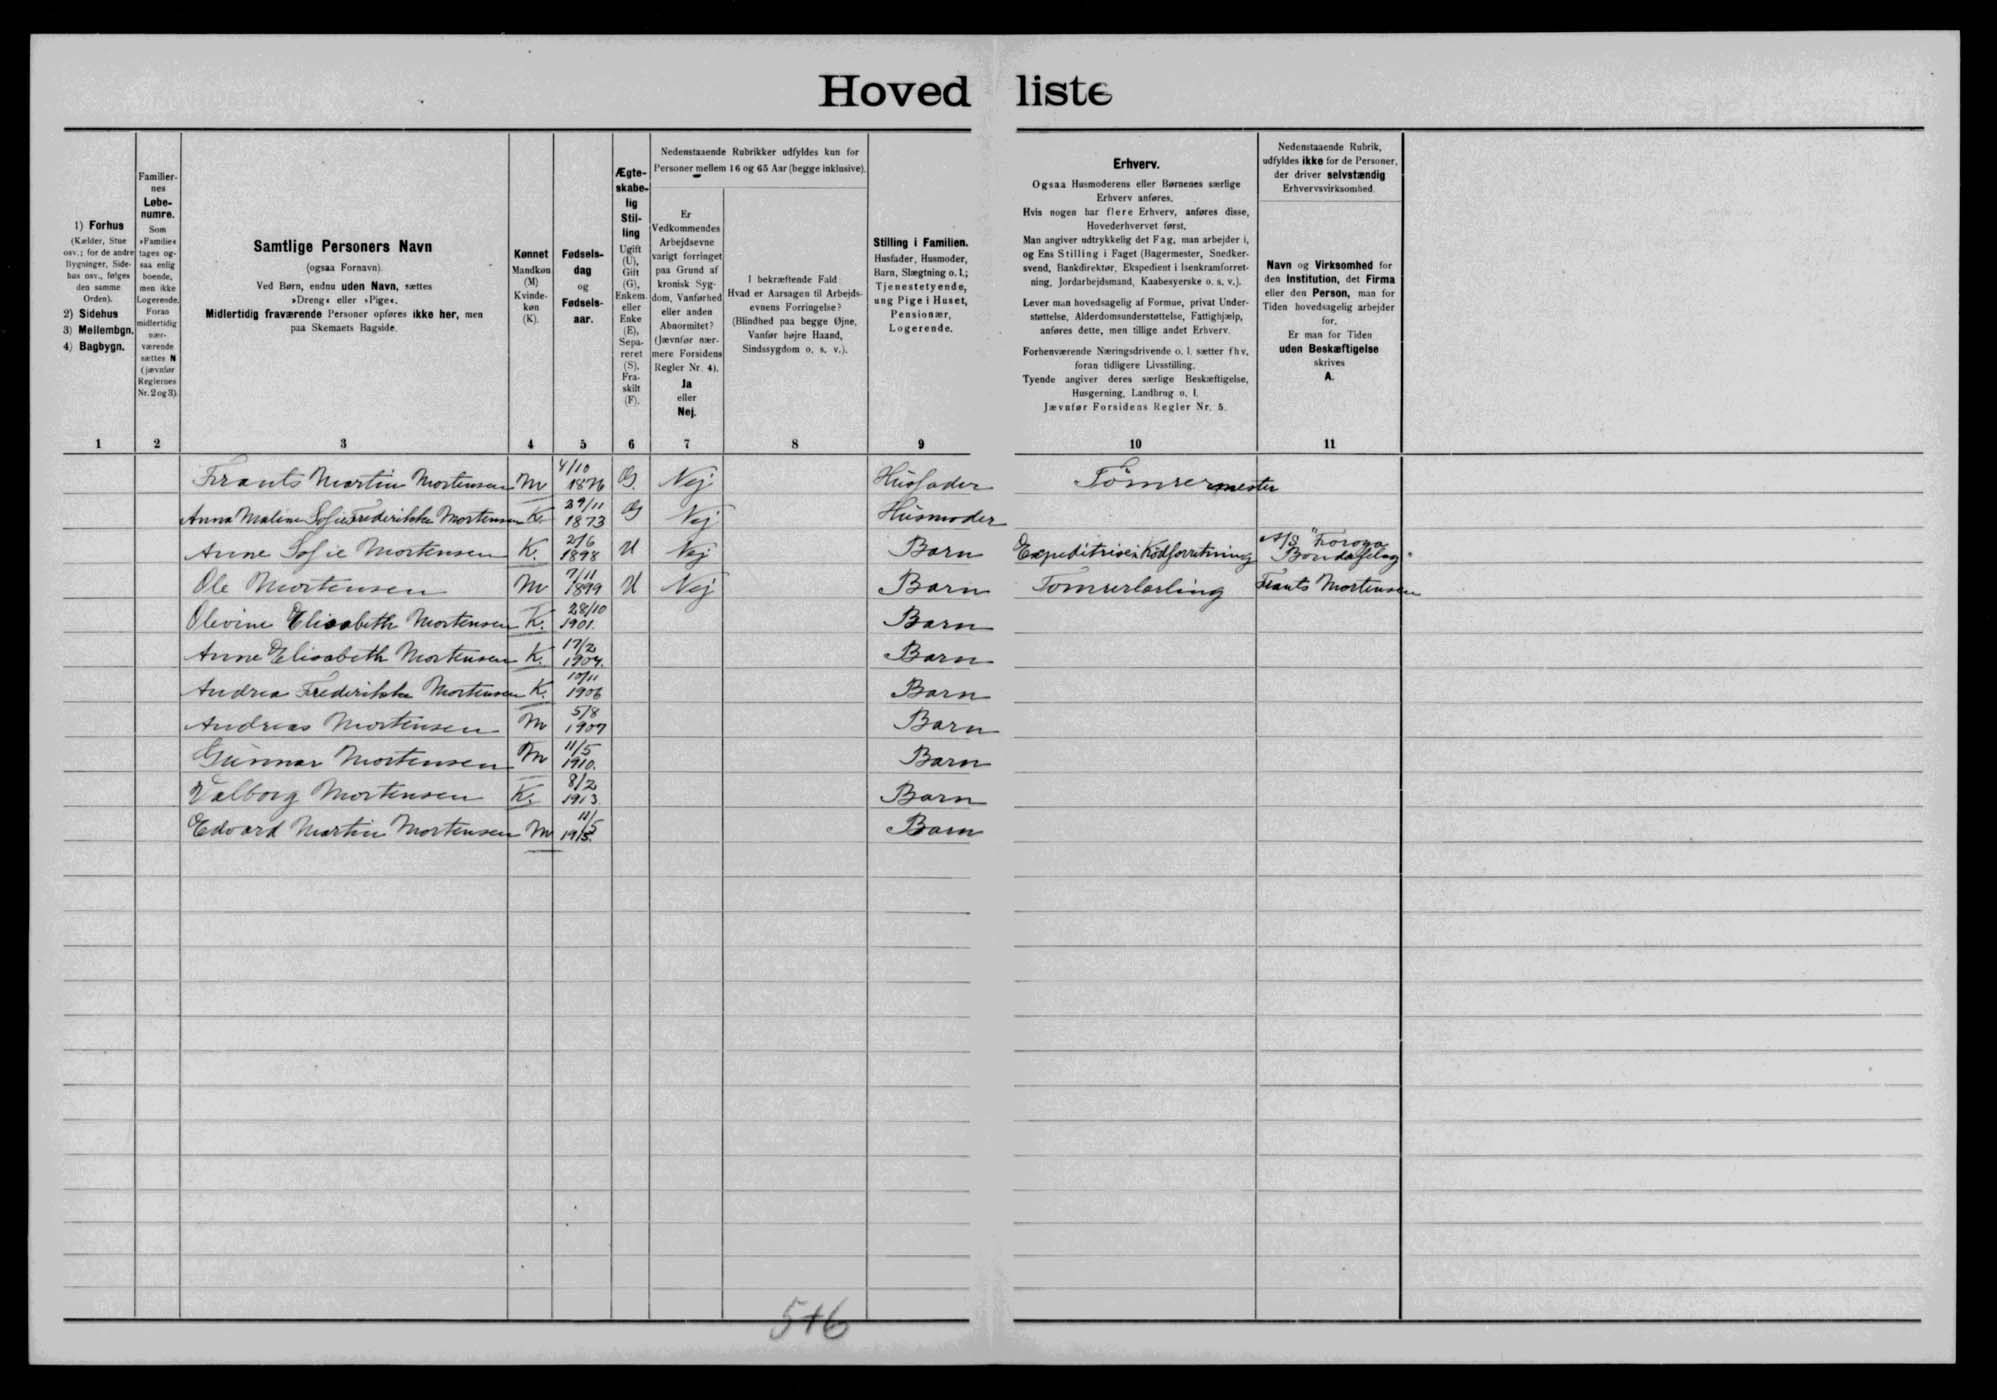 Hovedliste
1) Forhus
(Kælder, Stue
osv.; for de andre
Bygninger, Side-
hus osv., følges
den samme
Orden).
2) Sidehus
3) Mellembgn.
4) Bagbygn.
Familier-
nes
Løbe-
numre.
Som
»Familie«
tages og-
saa enlig
boende,
men ikke
Logerende.
Foran
midlertidig
nær-
værende
sættes N
(jævnfør
Reglernes
Nr. 2 og 3).
Samtlige Personers Navn
(ogsaa Fornavn).
Ved Børn, endnu uden Navn, sættes
»Dreng« eller »Pige«.
Midlertidig fraværende Personer opføres ikke her, men
paa Skemaets Bagside.
Kønnet
Mandkøn
(M)
Kvinde-
køn
(K).
Fødsels-
dag
og
Fødsels-
aar.
Ægte-
skabe-
lig
Stil-
ling
Ugift
(U),
Gift
(G),
Enkem.
eller
Enke
(E),
Sepa-
reret
(S),
Fra-
skilt
(F).
Nedenstaaende Rubrikker udfyldes kun for
Personer mellem 16 og 65 Aar (begge inklusive).
Er
Vedkommendes
Arbejdsevne
varigt forringet
paa Grund af
kronisk Syg-
dom, Vanførhed
eller anden
Abnormitet?
(Jævnfør nær-
mere Forsidens
Regler Nr. 4).
Ja
eller
Nej.
I bekræftende Fald:
Hvad er Aarsagen til Arbejds-
evnens Forringelse?
(Blindhed paa begge Øjne,
Vanfør højre Haand,
Sindssygdom o. s. v.).
Stilling i Familien.
Husfader, Husmoder,
Barn, Slægtning o. l.;
Tjenestetyende,
ung Pige i Huset,
Pensionær,
Logerende.
Erhverv.
Ogsaa Husmoderens eller Børnenes særlige
Erhverv anføres.
Hvis nogen har flere Erhverv, anføres disse,
Hovederhvervet først.
Man angiver udtrykkelig det Fag, man arbejder i,
og Ens Stilling i Faget (Bagermester, Snedker-
svend, Bankdirektør, Ekspedient i Isenkramforret-
ning, Jordarbejdsmand, Kaabesyerske o. s. v.).
Lever man hovedsagelig af Formue, privat Under-
støttelse, Alderdomsunderstøttelse, Fattighjælp,
anføres dette, men tillige andet Erhverv.
Forhenværende Næringsdrivende o. l. sætter fhv.
foran tidligere Livsstilling.
Tyende angiver deres særlige Beskæftigelse,
Husgerning, Landbrug o. l.
Jævnfør Forsidens Regler Nr. 5.
Nedenstaaende Rubrik,
udfyldes ikke for de Personer,
der driver selvstændig
Erhvervsvirksomhed.
Navn og Virksomhed for
den Institution, det Firma
eller den Person, man for
Tiden hovedsagelig arbejder
for.
Er man for Tiden
uden Beskæftigelse
skrives
A.
1 2 3 4 5 6 7 8 9 10 11
Frants Martin Mortensen M 4/10 1876 G. Nej Husfader Tømrermester
Anna Malene Sofie Frederikke Mortensen K. 29/11 1873 G Nej Husmoder
Anne Sofie Mortensen K. 2/6 1898 U Nej Barn Expeditrice i Kødforretning A/S "Føroya Bondafelag"
Ole Mortensen M 7/11 1899 U Nej Barn Tømrerlærling Frants Mortensen
Olevine Elisabeth Mortensen K. 28/10 1901. Barn
Anne Elisabeth Mortensen K. 17/2 1904. Barn
Andrea Frederikke Mortensen K. 10/11 1906 Barn
Andreas Mortensen M 5/8 1907 Barn
Gunnar Mortensen M 11/5 1910. Barn
Valborg Mortensen K. 8/2 1913. Barn
Edvard Martin Mortensen M 11/5 1915. Barn
5+6